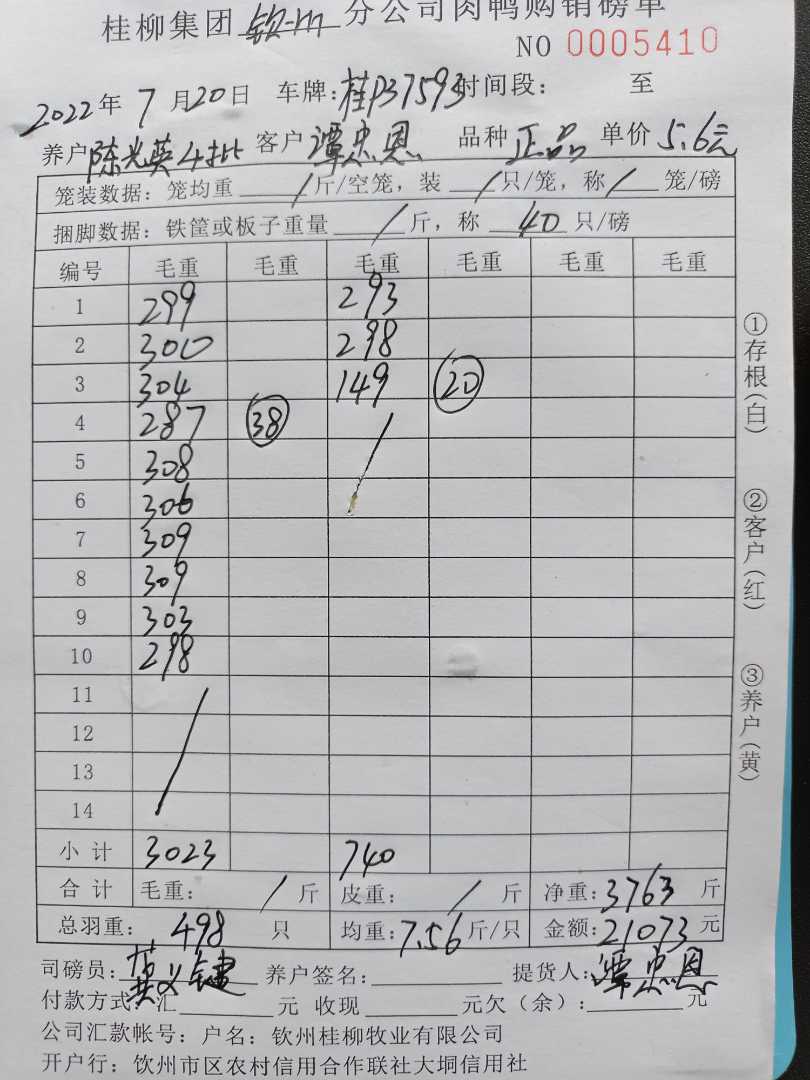 桂柳集团 钦州 分公司肉鸭购销磅单
NO 0005410
2022年7月20日 车牌:桂P37593 时间段: 至
养户 陈光英4批 客户 谭忠恩 品种 正品 单价 5.6元
笼装数据: 笼均重 / 斤/空笼, 装 / 只/笼, 称 / 笼/磅
捆脚数据: 铁筐或板子重量 / 斤, 称 40 只/磅
编号 毛重 毛重 毛重 毛重 毛重 毛重
1 299 293
2 300 298
3 304 149 20
4 287 38 /
5 308
6 306
7 309
8 309
9 303
10 298
11 /
12
13
14
小计 3023 740
合计 毛重: / 斤 皮重: / 斤 净重:3763 斤
总羽重: 498 只 均重:7.56斤/只 金额:21073元
司磅员: 养户签名: 提货人:谭忠恩
付款方式:汇 元 收现 元欠(余): 元
公司汇款帐号: 户名: 钦州桂柳牧业有限公司
开户行: 钦州市区农村信用合作联社大垌信用社
①存根(白)
②客户(红)
③养户(黄)